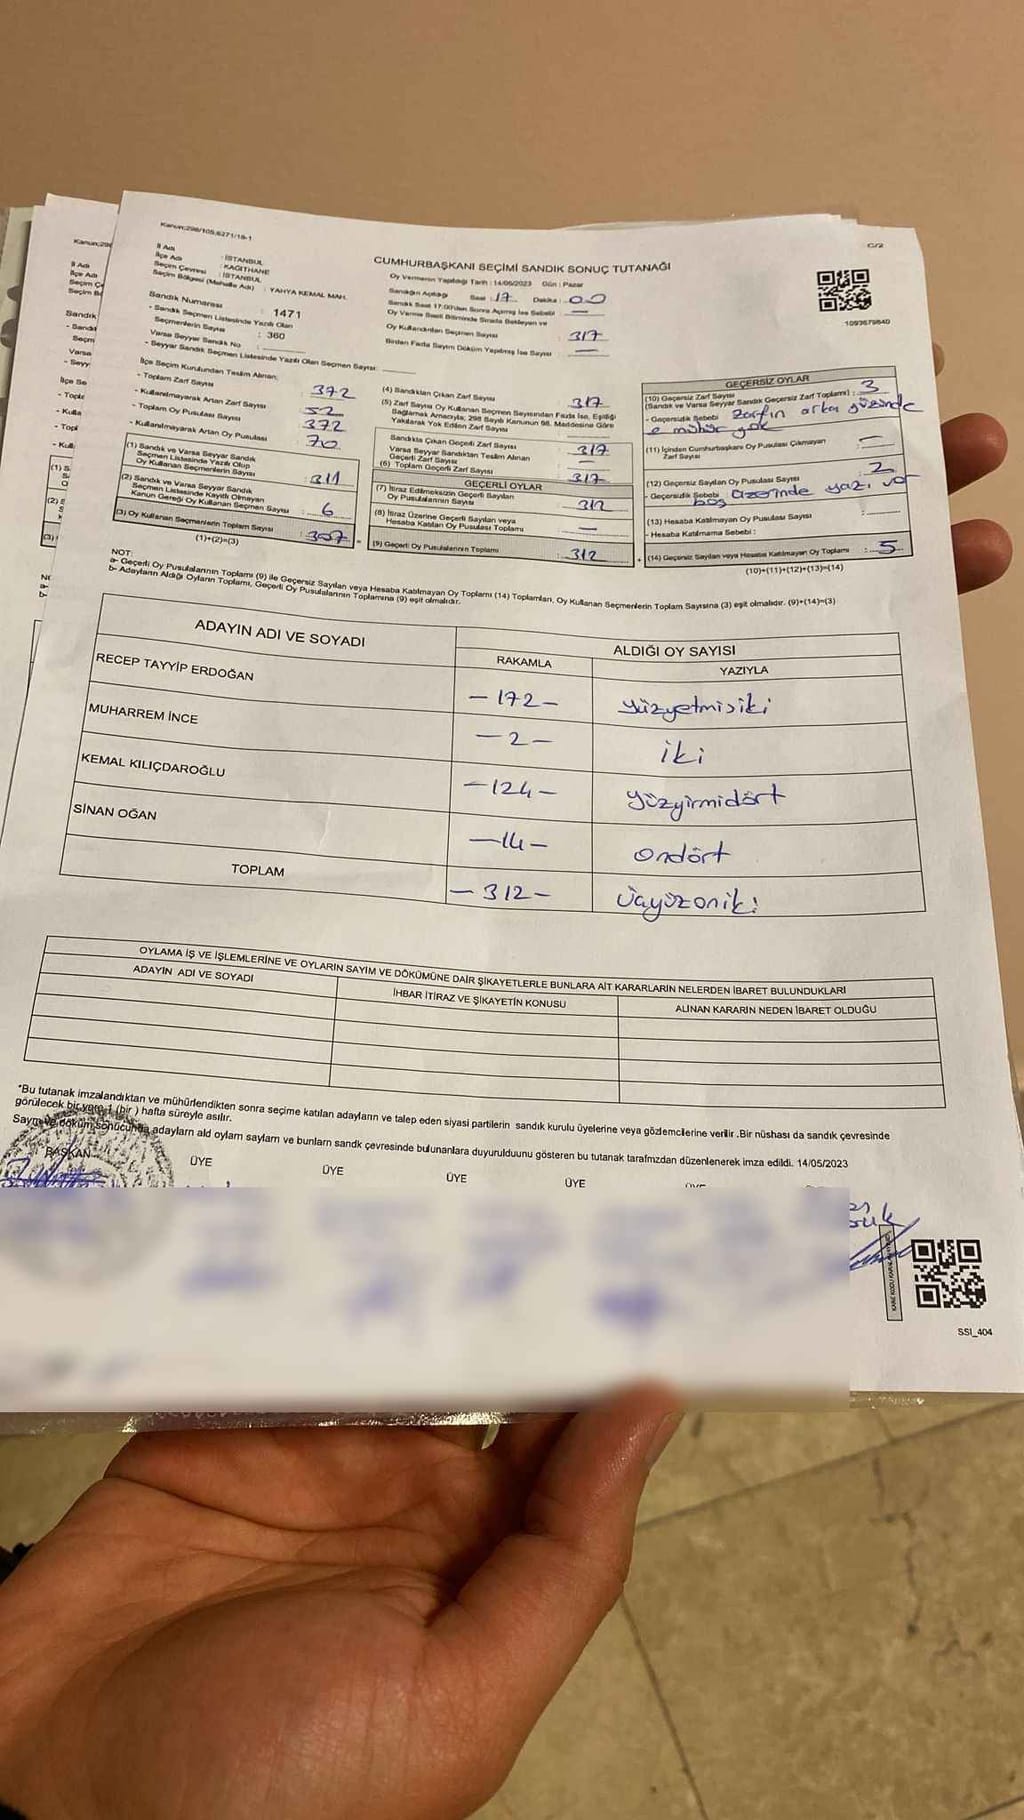 Kanun:298/105,6271/18-1
C/2
İl Adı : İSTANBUL
İlçe Adı : KAĞITHANE
Seçim Çevresi : İSTANBUL
Seçim Bölgesi (Mahalle Adı) : YAHYA KEMAL MAH.
Sandık Numarası : 1471
- Sandık Seçmen Listesinde Yazılı Olan
Seçmenlerin Sayısı : 360
Varsa Seyyar Sandık No :
- Seyyar Sandık Seçmen Listesinde Yazılı Olan Seçmen Sayısı:
CUMHURBAŞKANI SEÇİMİ SANDIK SONUÇ TUTANAĞI
Oy Vermenin Yapıldığı Tarih : 14/05/2023 Gün : Pazar
Sandığın Açıldığı Saat : 17 Dakika : 00
Sandık Saat 17:00'den Sonra Açılmış İse Sebebi : —
Oy Verme Saati Bitiminde Sırada Bekleyen ve
Oy Kullandırılan Seçmen Sayısı : 317
Birden Fazla Sayım Döküm Yapılmış İse Sayısı : —
1093679840
İlçe Seçim Kurulundan Teslim Alınan;
- Toplam Zarf Sayısı : 372
- Kullanılmayarak Artan Zarf Sayısı : 52
- Toplam Oy Pusulası Sayısı : 372
- Kullanılmayarak Artan Oy Pusulası : 70
(1) Sandık ve Varsa Seyyar Sandık
Seçmen Listesinde Yazılı Olup
Oy Kullanan Seçmenlerin Sayısı : 311
(2) Sandık ve Varsa Seyyar Sandık
Seçmen Listesinde Kayıtlı Olmayan
Kanun Gereği Oy Kullanan Seçmen Sayısı : 6
(3) Oy Kullanan Seçmenlerin Toplam Sayısı
(1)+(2)=(3)
(4) Sandıktan Çıkan Zarf Sayısı : 317
(5) Zarf Sayısı Oy Kullanan Seçmen Sayısından Fazla İse, Eşitliği
Sağlamak Amacıyla, 298 Sayılı Kanunun 98. Maddesine Göre
Yakılarak Yok Edilen Zarf Sayısı
Sandıkta Çıkan Geçerli Zarf Sayısı : 317
Varsa Seyyar Sandıktan Teslim Alınan
Geçerli Zarf Sayısı
(6) Toplam Geçerli Zarf Sayısı : 317
GEÇERLİ OYLAR
(7) İtiraz Edilmeksizin Geçerli Sayılan
Oy Pusulalarının Sayısı : 312
(8) İtiraz Üzerine Geçerli Sayılan veya
Hesaba Katılan Oy Pusulası Toplamı : —
(9) Geçerli Oy Pusulalarının Toplamı : 312
GEÇERSİZ OYLAR
(10) Geçersiz Zarf Sayısı
(Sandık ve Varsa Seyyar Sandık Geçersiz Zarf Toplamı) : 3
- Geçersizlik Sebebi zarfın arka yüzünde
mühür yok
(11) İçinden Cumhurbaşkanı Oy Pusulası Çıkmayan
Zarf Sayısı : —
(12) Geçersiz Sayılan Oy Pusulası Sayısı : 2
- Geçersizlik Sebebi üzerinde yazı var
boş
(13) Hesaba Katılmayan Oy Pusulası Sayısı :
- Hesaba Katılmama Sebebi :
(14) Geçersiz Sayılan veya Hesaba Katılmayan Oy Toplamı : 5
(10)+(11)+(12)+(13)=(14)
NOT:
a- Geçerli Oy Pusulalarının Toplamı (9) ile Geçersiz Sayılan veya Hesaba Katılmayan Oy Toplamı (14) Toplamları, Oy Kullanan Seçmenlerin Toplam Sayısına (3) eşit olmalıdır. (9)+(14)=(3)
b- Adayların Aldığı Oyların Toplamı, Geçerli Oy Pusulalarının Toplamına (9) eşit olmalıdır.
ADAYIN ADI VE SOYADI ALDIĞI OY SAYISI
RAKAMLA YAZIYLA
RECEP TAYYİP ERDOĞAN — 172 — yüzyetmişiki
MUHARREM İNCE — 2 — iki
KEMAL KILIÇDAROĞLU — 124 — yüzyirmidört
SİNAN OĞAN — 14 — ondört
TOPLAM — 312 — üçyüzoniki
OYLAMA İŞ VE İŞLEMLERİNE VE OYLARIN SAYIM VE DÖKÜMÜNE DAİR ŞİKAYETLERLE BUNLARA AİT KARARLARIN NELERDEN İBARET BULUNDUKLARI
ADAYIN ADI VE SOYADI İHBAR İTİRAZ VE ŞİKAYETİN KONUSU ALINAN KARARIN NEDEN İBARET OLDUĞU
*Bu tutanak imzalandıktan ve mühürlendikten sonra seçime katılan adayların ve talep eden siyasi partilerin sandık kurulu üyelerine veya gözlemcilerine verilir .Bir nüshası da sandık çevresinde
görülecek bir yere 1 (bir ) hafta süreyle asılır.
Sayım ve döküm sonucunda adayların ald oylam saylam ve bunların sandk çevresinde bulunanlara duyurulduunu gösteren bu tutanak tarafmzdan düzenlenerek imza edildi. 14/05/2023
BAŞKAN ÜYE ÜYE ÜYE ÜYE ÜYE
SSI_404